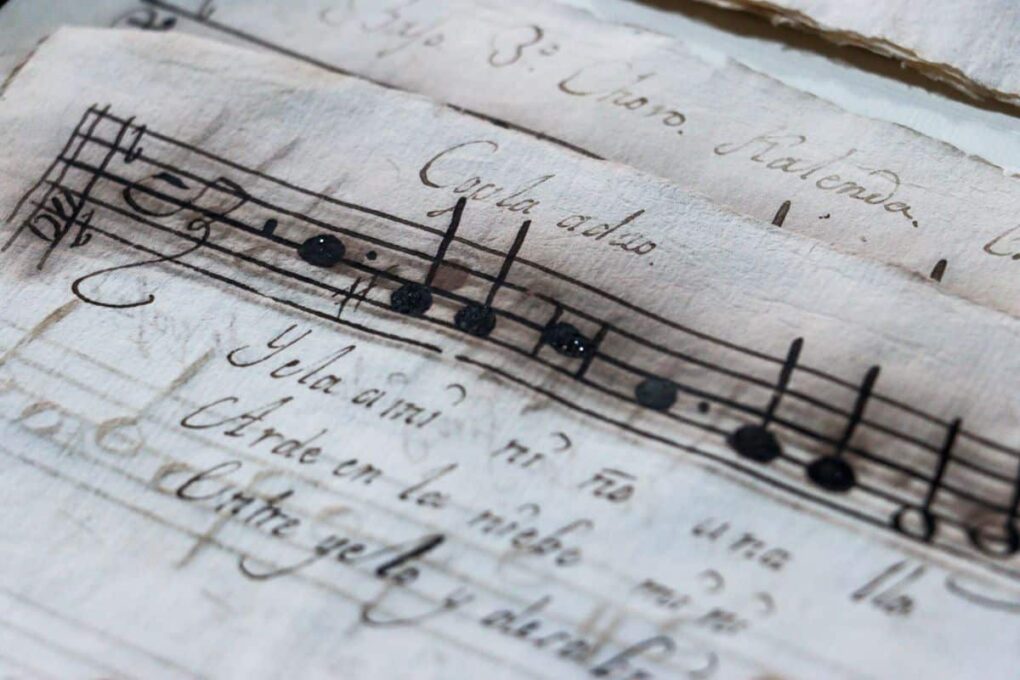 3º Choro. Kalenda.
Copla aduo.
Yela a mi ni ño una lla
Arde en la niebe mi ni
Entre yelo y